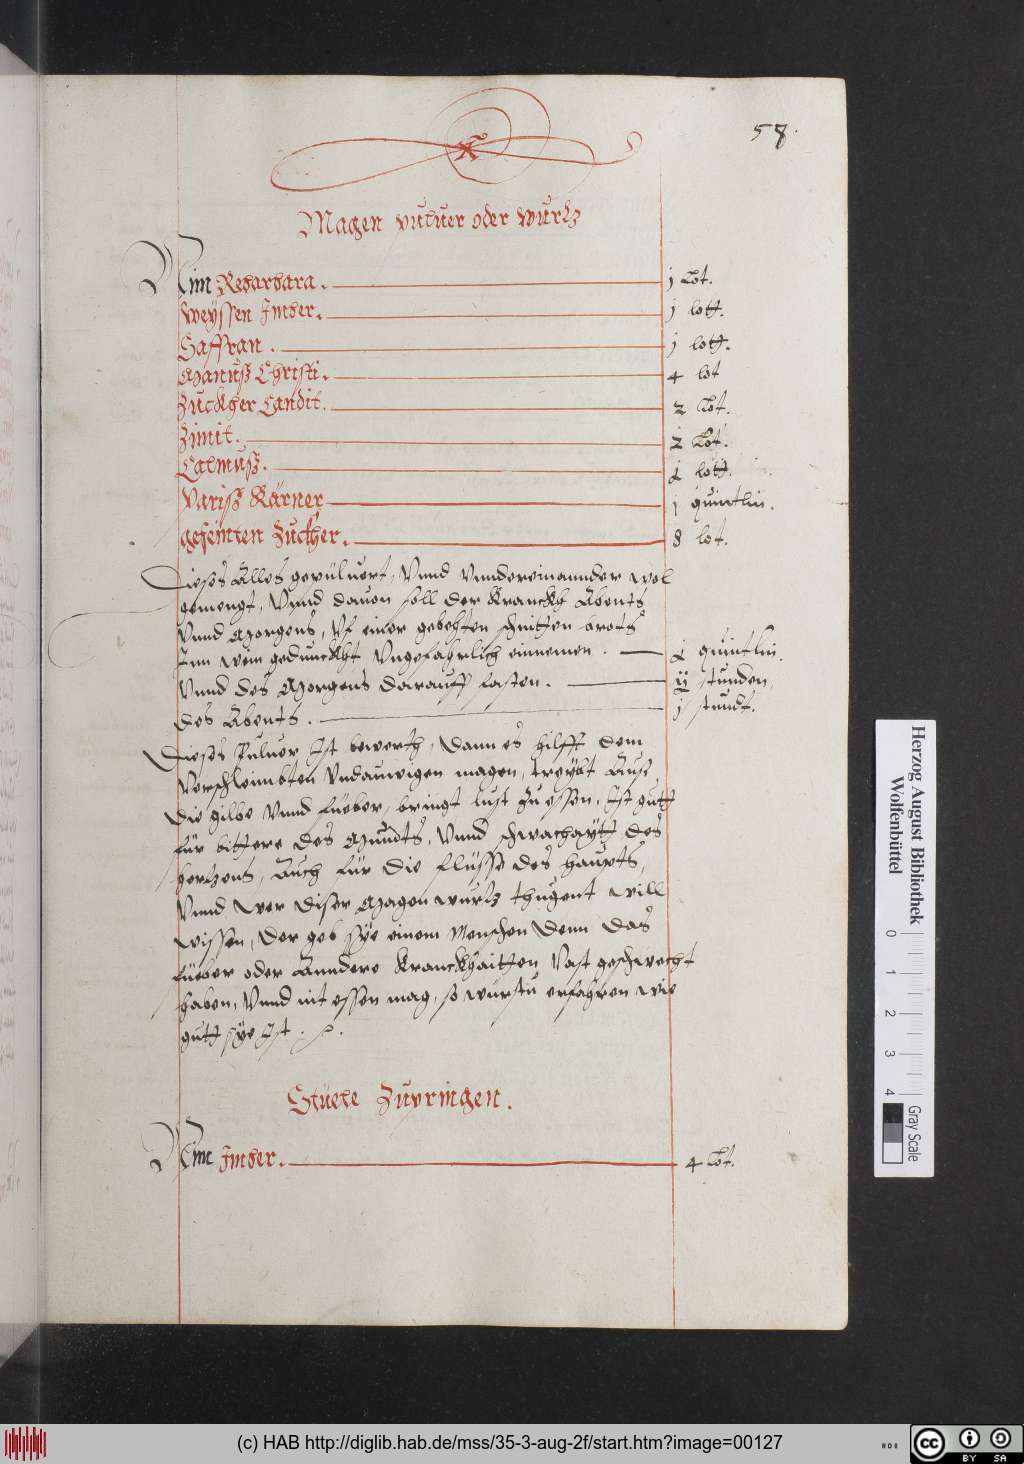 58.
Magen puluer oder wurtz
Nim Rebarbara. j Lot.
Weyssen Imber. j lott.
Saffran. j lott.
Manuß Christi. 4 lot
Zuckher Candit. 2 Lot.
Zimit. 2 Lot.
Calmuß. lott.
Pariß Kärner j quintlin.
gefeinten Zuckher. 8 lot.
Dieses Alles gepüluert, Vnnd Vndereinannder wol
gemengt, Vnnd dauon soll der Kranckh Abents
Vnnd Morgens, Vf einer gebehten schnitten brots
Inn wein gedunckht Vngefahrlich einnemen. quintlin.
Vnnd des Morgens darauff fasten. ij stunden,
des Abents. j stundt.
Dieses Puluer Ist bewerth, dann es hilfft dem
Verschleimbten Vndauwigen magen, treybt Auß
die gilbe Vnnd fieber, bringt lust zu essen, Ist gutt
für bittere des Mundts, Vnnd schwachaytt des
hertzens, Auch für die flüsse des haupts,
Vnnd wer diser Magen wurtz thugent will
wissen, der geb sye einem Menschen denn das
fieber oder Anndere Kranckhaitten Vast geschwecht
haben, Vnnd nit essen mag, so würstu erfahren wie
gutt sye Ist.
Stüele Zupringen.
Nim Imber. 4 Lot.
Herzog August Bibliothek
Wolfenbüttel
0 1 2 3 4
Gray Scale
(c) HAB http://diglib.hab.de/mss/35-3-aug-2f/start.htm?image=00127
cc BY SA